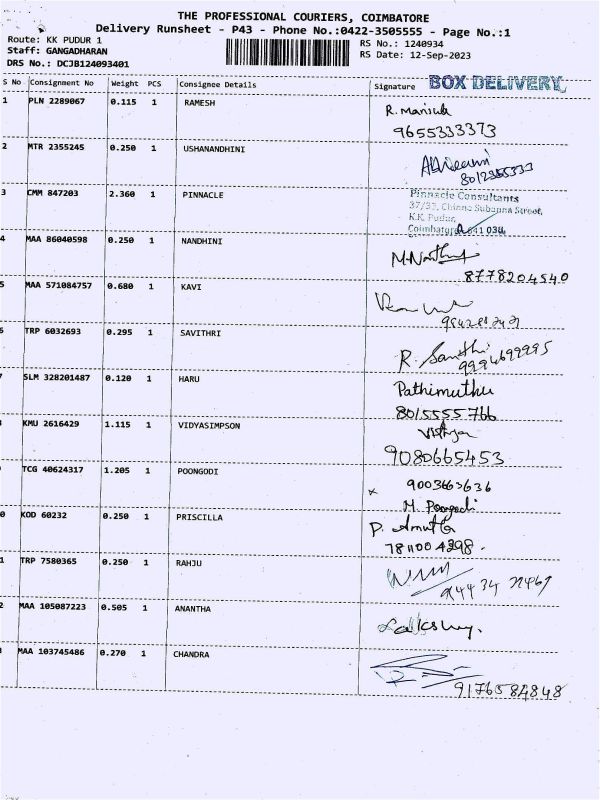 THE PROFESSIONAL COURIERS, COIMBATORE
Delivery Runsheet - P43 - Phone No.:0422-3505555 - Page No.:1
Route: KK PUDUR 1
RS No.: 1240934
Staff: GANGADHARAN
RS Date: 12-Sep-2023
DRS No.: DCJB124093401
BOX DELIVERY
S No Consignment No Weight PCS Consignee Details Signature
1 PLN 2289067 0.115 1 RAMESH R. Manisub
9655333373
2 MTR 2355245 0.250 1 USHANANDHINI
8012355333
3 CMM 847203 2.360 1 PINNACLE Pinnacle Consultants
37/32, Chinna Subanna Street,
K.K. Pudur,
Coimbatore 641 038
4 MAA 86040598 0.250 1 NANDHINI
8778204540
5 MAA 571084757 0.680 1 KAVI
6 TRP 6032693 0.295 1 SAVITHRI R.
9994699995
7 SLM 328201487 0.120 1 HARU Pathimuthu
8015555766
KMU 2616429 1.115 1 VIDYASIMPSON
9080665453
TCG 40624317 1.205 1 POONGODI 9003663636
x M. Poongodi
0 KOD 60232 0.250 1 PRISCILLA P. Amutha
7811004298.
1 TRP 7580365 0.250 1 RAHJU
2 MAA 105087223 0.505 1 ANANTHA
MAA 103745486 0.270 1 CHANDRA
9176584848